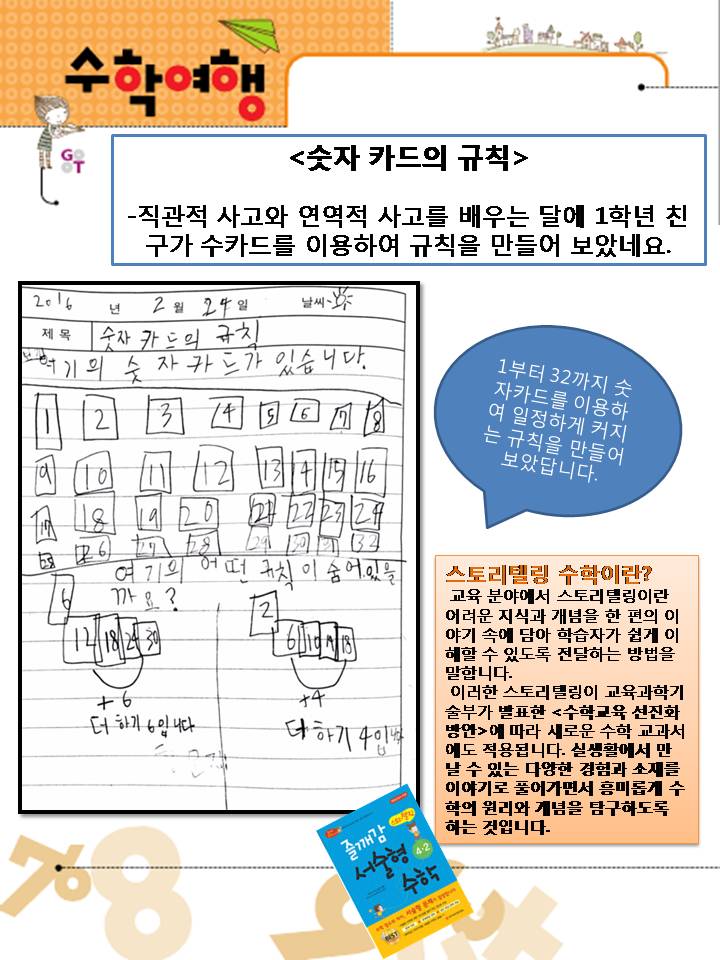 수학여행
GO
OT
<숫자 카드의 규칙>
-직관적 사고와 연역적 사고를 배우는 달에 1학년 친
구가 수카드를 이용하여 규칙을 만들어 보았네요.
2016 년 2 월 24 일 날씨-
제 목 숫자 카드의 규칙
여기의 숫자카드가 있습니다.
1 2 3 4 5 6 7 8
9 10 11 12 13 14 15 16
17 18 19 20 21 22 23 24
25 26 27 28 29 30 31 32
여기의 어떤 규칙이 숨어있을
까요?
6 12 18 24 30
+6
더하기 6입니다
2 6 10 14 18
+4
더하기 4입니다
1부터 32까지 숫
자카드를 이용하
여 일정하게 커지
는 규칙을 만들어
보았답니다.
스토리텔링 수학이란?
교육 분야에서 스토리텔링이란
어려운 지식과 개념을 한 편의 이
야기 속에 담아 학습자가 쉽게 이
해할 수 있도록 전달하는 방법을
말합니다.
이러한 스토리텔링이 교육과학기
술부가 발표한 <수학교육 선진화
방안>에 따라 새로운 수학 교과서
에도 적용됩니다. 실생활에서 만
날 수 있는 다양한 경험과 소재를
이야기로 풀어가면서 흥미롭게 수
학의 원리와 개념을 탐구하도록
하는 것입니다.
즐깨감
서술형
수학
4·2
BEST